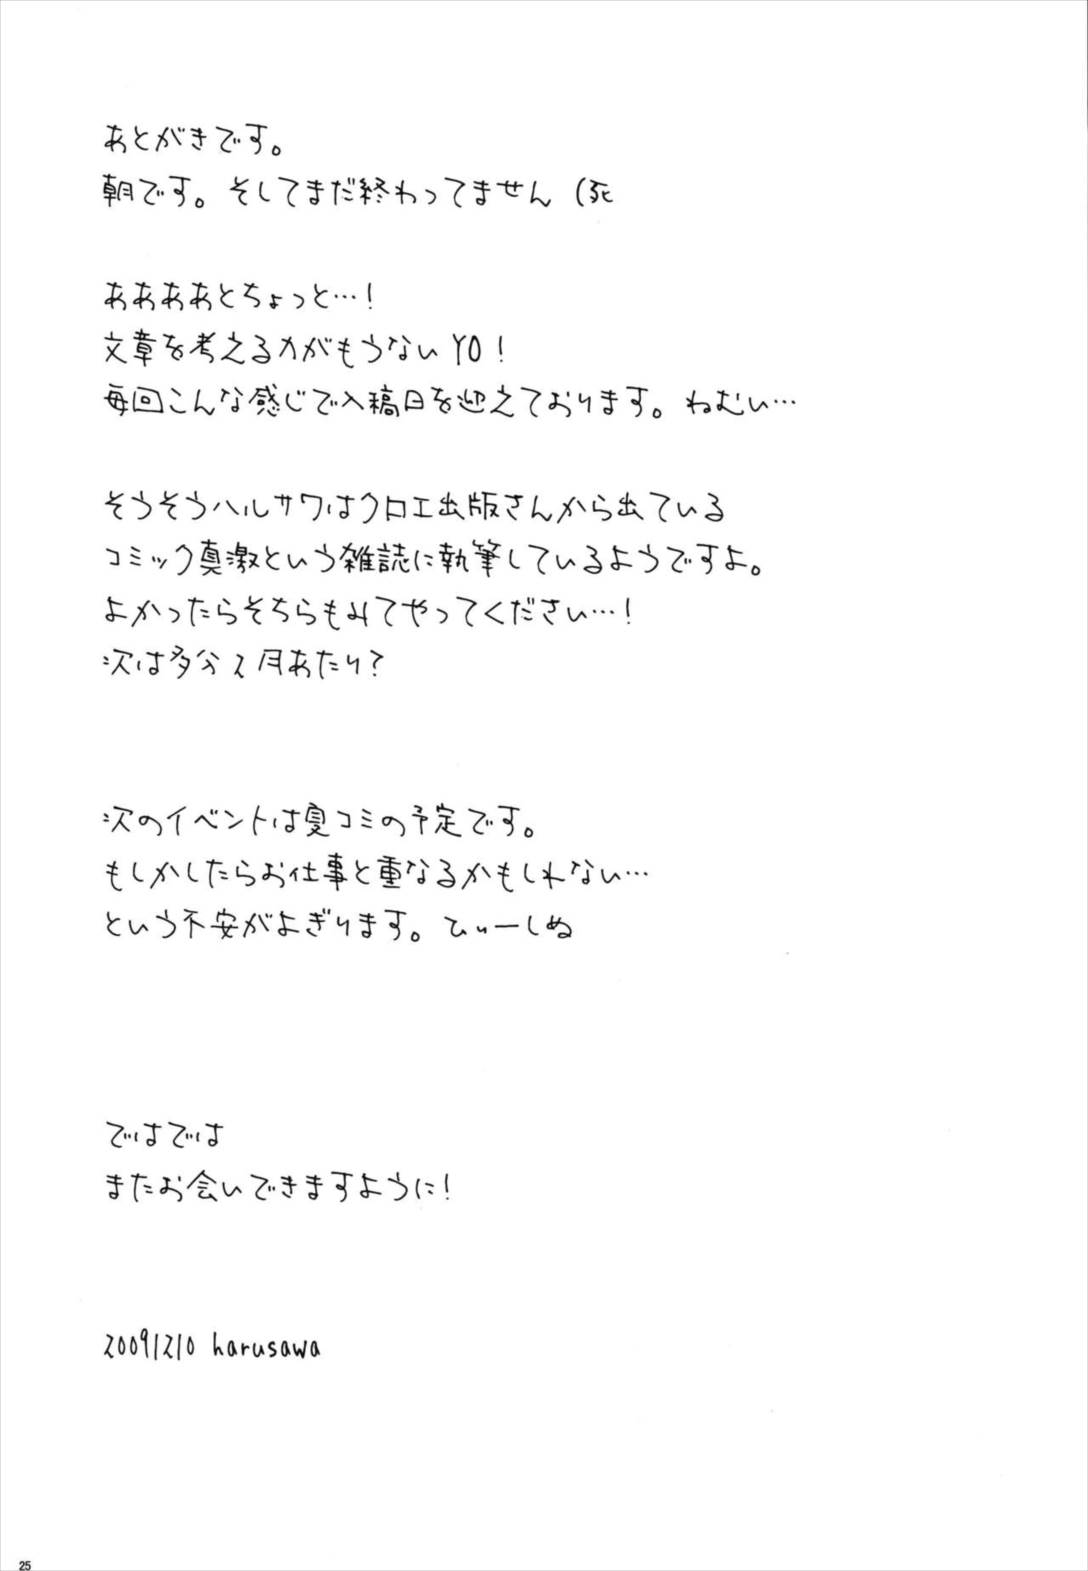 あとがきです。
朝です。そしてまだ終わってません（死
ああああとちょっと…！
文章を考える力がもうないYO！
毎回こんな感じで入稿日を迎えております。ねむい…
そうそうハルサワはクロエ出版さんから出ている
コミック真激という雑誌に執筆しているようですよ。
よかったらそちらもみてやってください…！
次は多分2月あたり？
次のイベントは夏コミの予定です。
もしかしたらお仕事と重なるかもしれない…
という不安がよぎります。ひぃーしぬ
ではでは
またお会いできますように！
20091210 harusawa
25